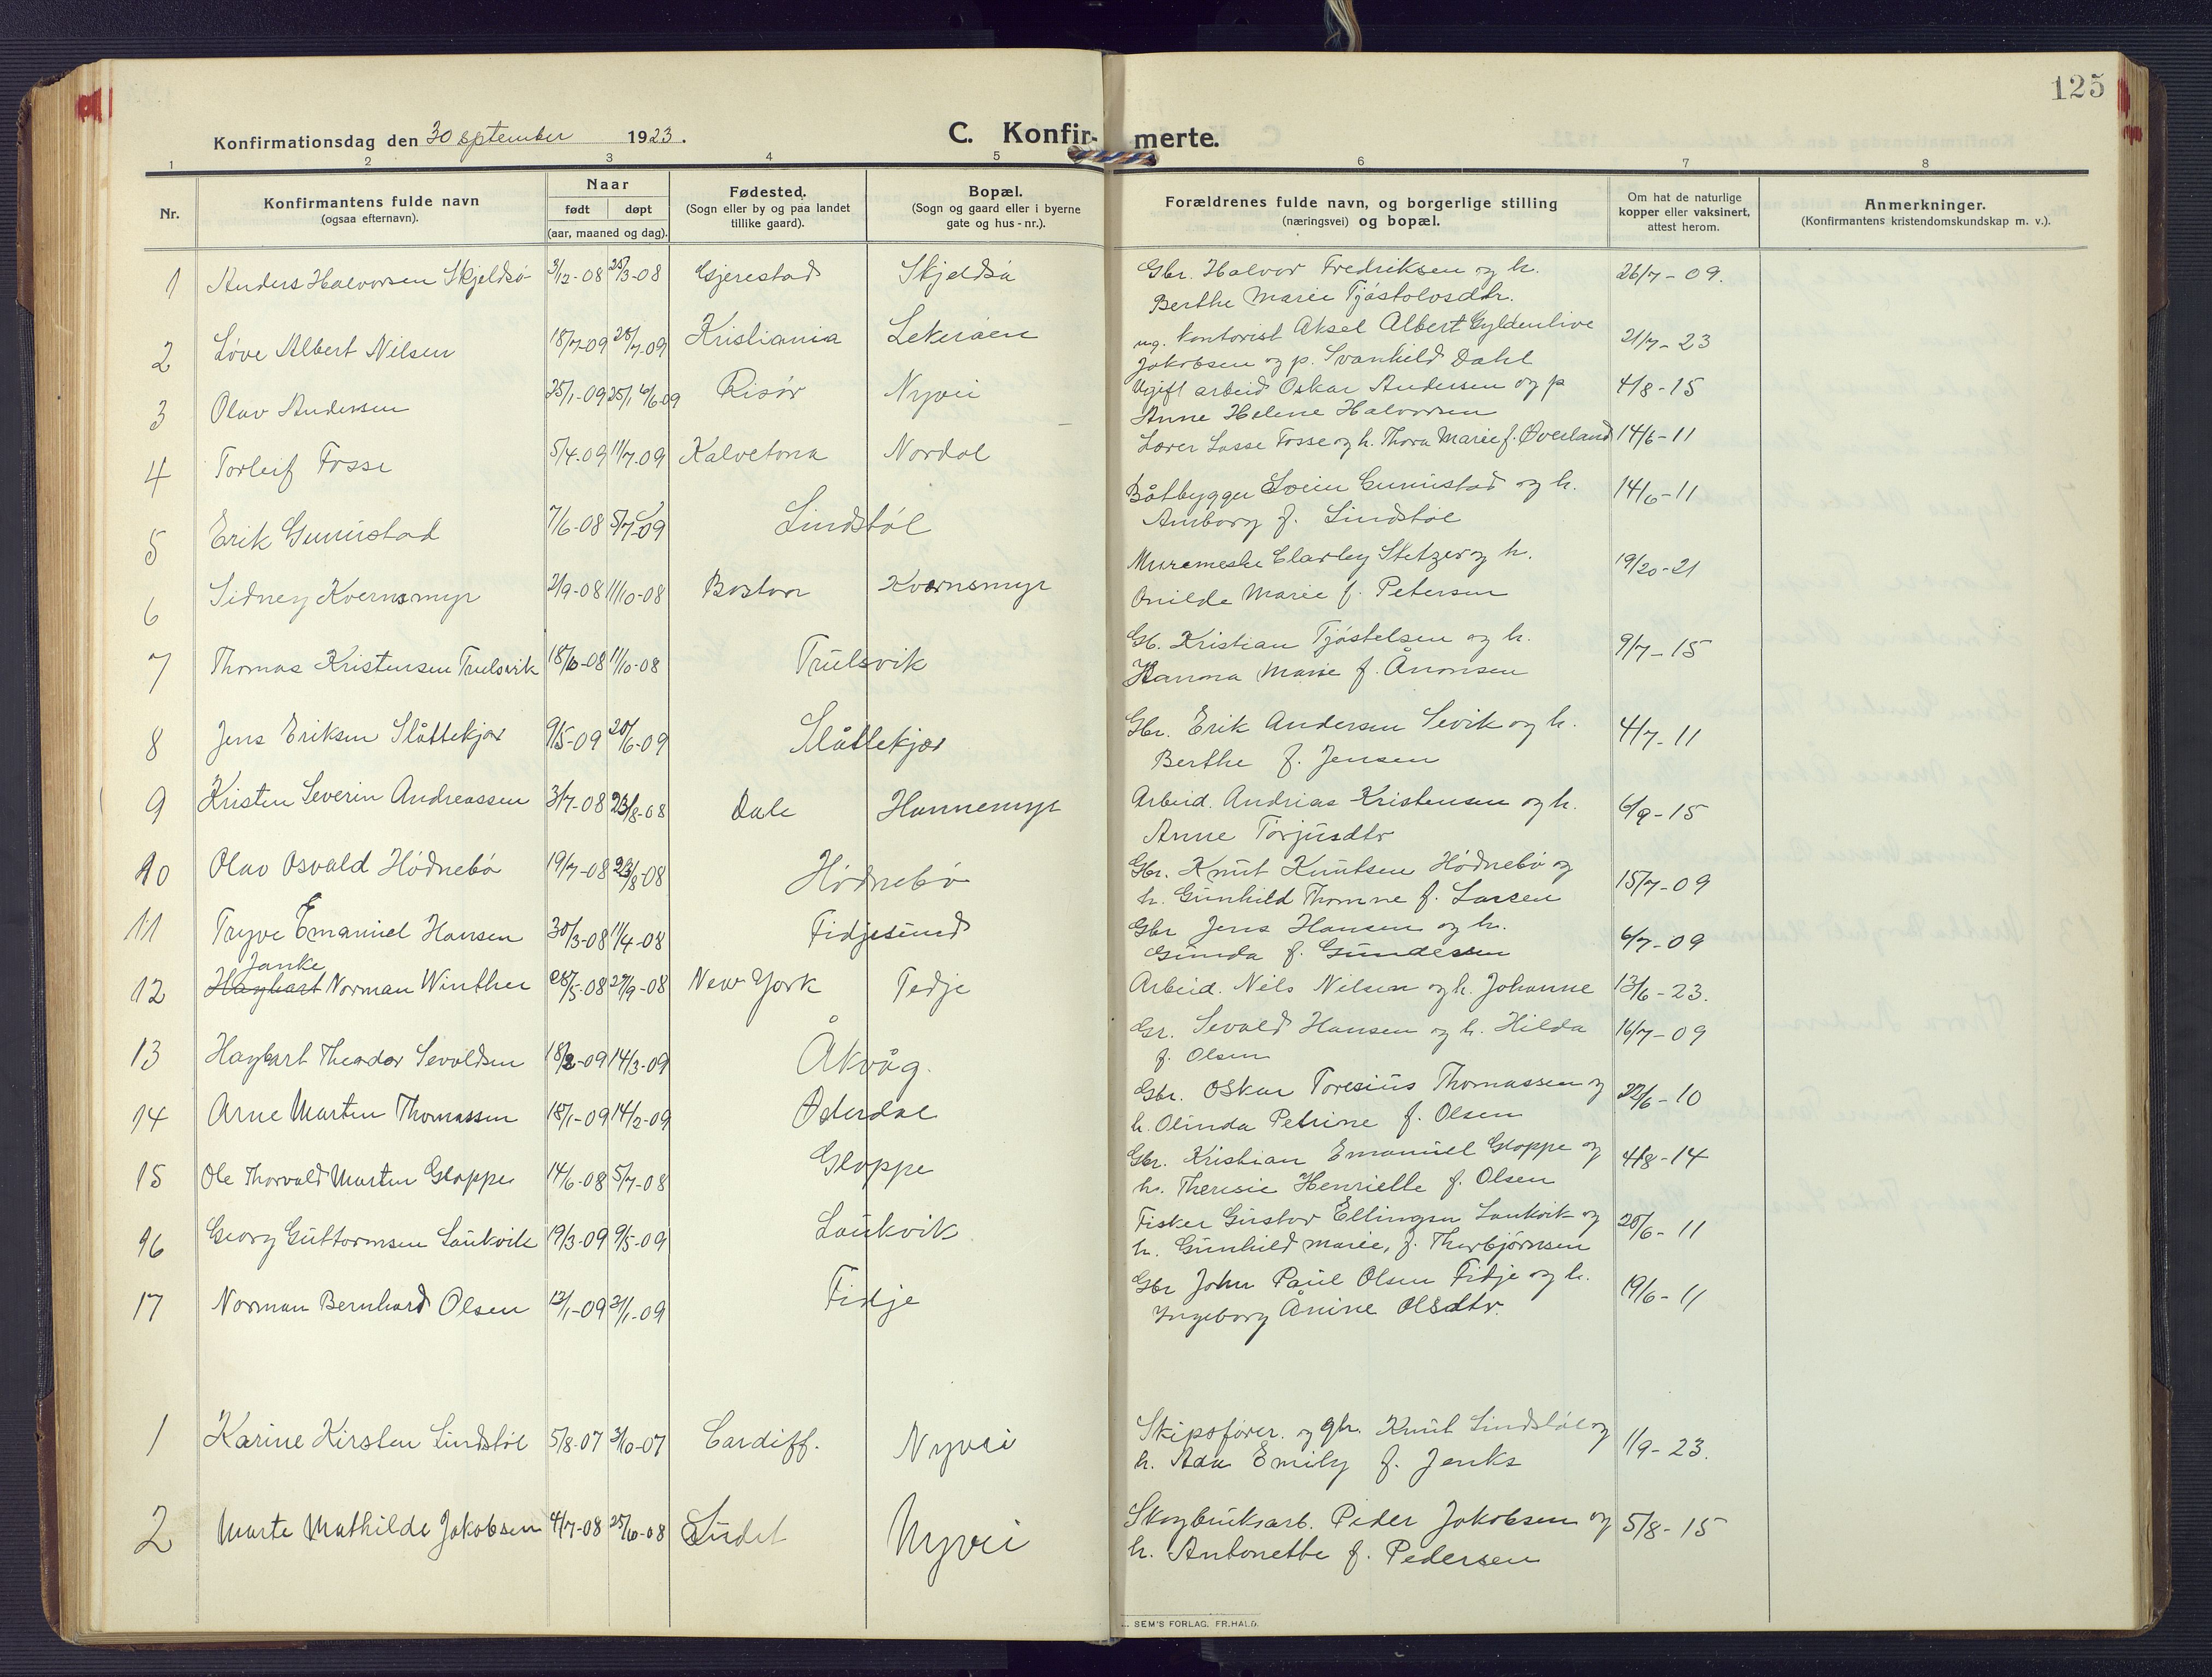 125
Konfirmationsdag den 30 september 1923.
C. Konfir- merte.
1 2 3 4 5 6 7 8
Nr.
Konfirmantens fulde navn
(ogsaa efternavn).
Naar
født døpt
(aar, maaned og dag).
Fødested.
(Sogn eller by og paa landet
tillike gaard).
Bopæl.
(Sogn og gaard eller i byerne
gate og hus-nr.).
Forældrenes fulde navn, og borgerlige stilling
(næringsvei) og bopæl.
Om hat de naturlige
kopper eller vaksinert,
attest herom.
Anmerkninger.
(Konfirmantens kristendomskundskap m. v.).
1 Anders Halvorsen Skjeldsø 3/12-08 25/3-08 Gjerestad Skjeldsø Gbr. Halvor Fredriksen og h. 26/7-09.
Berthe Marie Tjøstolvsdtr.
2 Løve Albert Nilsen 18/7-09 28/7-09 Kristiania Lekeråen ug. kontorist Aksel Albert Gyldenløve 21/7-23
Jakobsen og p. Svanhild Dahl
3 Olav Andersen 25/1-09 6/6-09 Risør Nyvei Ugift arbeid Oskar Andersen og p 4/8-15
Anne Helene Halvorsen
4 Torleif Fosse 5/4-09 11/7-09 Kalvetona Nordal Lærer Lasse Fosse og h. Thora Marie f. Øverland 14/6-11
5 Erik Gunnistad 7/6-08 5/7-09 Lindstøl Båtbygger Svein Gunnistad og h. 14/6-11
Amborg f. Lindstøl
6 Sidney Kvernsmyr 2/9-08 11/10-08 Boston Kvernsmyr Muremeste Clarley Stetzer og h. 19/20-21
Onilde Marie f. Petersen
7 Thomas Kristensen Trulsvik 18/6-08 11/10-08 Trulsvik Gb. Kristian Tjøstelsen og h. 9/7-15
Hanna Marie f. Ånonsen
8 Jens Eriksen Slåttekjær 9/5-09 20/6-09 Slåttekjær Gbr. Erik Andersen Sevik og h. 4/7-11
Berthe f. Jensen
9 Kristen Severin Andreassen 3/7-08 23/8-08 Dale Hannemyr Arbeid. Andrias Kristensen og h. 6/9-15
Anne Torjusdtr
10 Olav Osvald Hødnebø 19/7-08 23/8-08 Hødnebø Gbr. Knut Knutsen Hødnebø og 15/7-09
h. Gunhild Thomne f. Larsen
11 Tryve Emanuel Hansen 30/3-08 11/4-08 Fidjesund Gbr Jens Hansen og h. 6/7-09
Gunda f. Gundersen
Janke
12 Haybart Norman Winther 28/5-08 27/9-08 New York Tedje Arbeid. Nils Nilsen og h. Johanne 13/6-23.
13 Haybart Theodor Sevaldsen 18/2-09 14/3-09 Åkvåg. Gr. Sevald Hansen og h. Hilda 16/7-09
f. Olsen
14 Arne Marten Thomassen 18/1-09 14/2-09 Østerdal Gbr. Oskar Toresius Thomassen og 22/6-10
h. Olinda Petrine f. Olsen
15 Ole Thorvald Marten Gloppe 14/6-08 5/7-08 Gloppe Gbr. Kristian Emanuel Gloppe og 4/8-14
h. Theresie Henriette f. Olsen
16 Georg Guttormsen Laukvik 19/3-09 9/5-09 Laukvik Fisker Gustav Ellingsen Laukvik og 20/6-11
h. Gunhild Marie, f. Thorbjørnsen
17 Norman Bernhard Olsen 12/1-09 31/1-09 Fidje Gbr John Paul Olsen Fidje og h. 19/6-11
Ingeborg Ånine Olsdtr.
1 Karine Kirsten Lindstøl 5/8-07 3/10-07 Cardiff. Nyvei Skipsfører. og gbr. Knut Lindstøl og 1/9-23.
h. Ada Emily f. Jenks
2 Marte Mathilde Jakobsen 4/7-08 25/10-08 Sundet Nyvei Skogbruksarb. Peder Jakobsen og 5/8-15
h. Antonette f. Pedersen
SEM'S FORLAG, FR.HALD.